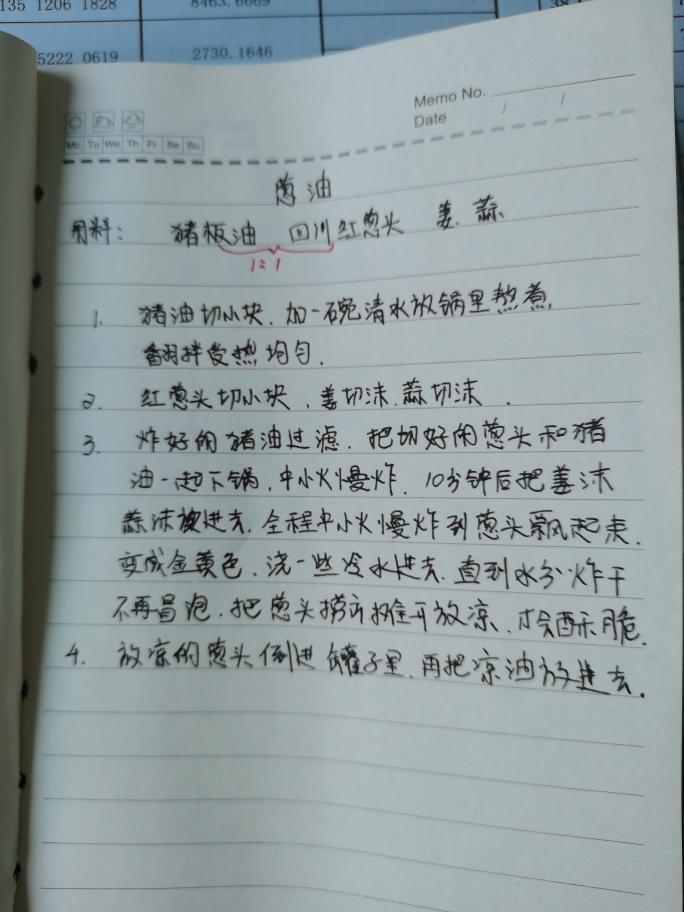 135 1206 1828
8463.6669
5222 0619
2730.1646
Memo No.
Date / /
Mo Tu We Th Fr Sa Su
葱油
用料: 猪板油 四川红葱头 姜. 蒜
1:1
1. 猪油切小块. 加一碗清水放锅里熬煮,
翻拌受热均匀.
2. 红葱头切小块 、姜切沫.蒜切沫 .
3. 炸好的猪油过滤. 把切好的葱头和猪
油一起下锅, 中小火慢炸. 10分钟后把姜沫
蒜沫放进去. 全程中小火慢炸到葱头飘起来.
变成金黄色. 浇一些冷水进去. 直到水分炸干
不再冒泡. 把葱头捞斤摊开放凉. 才会酥脆.
4. 放凉的葱头倒进罐子里. 再把凉油放进去.